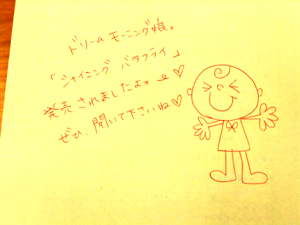 ドリームモーニング娘。
「シャイニング バタフライ」
発売されましたよォ♡
ぜひ、聞いて下さいね♡